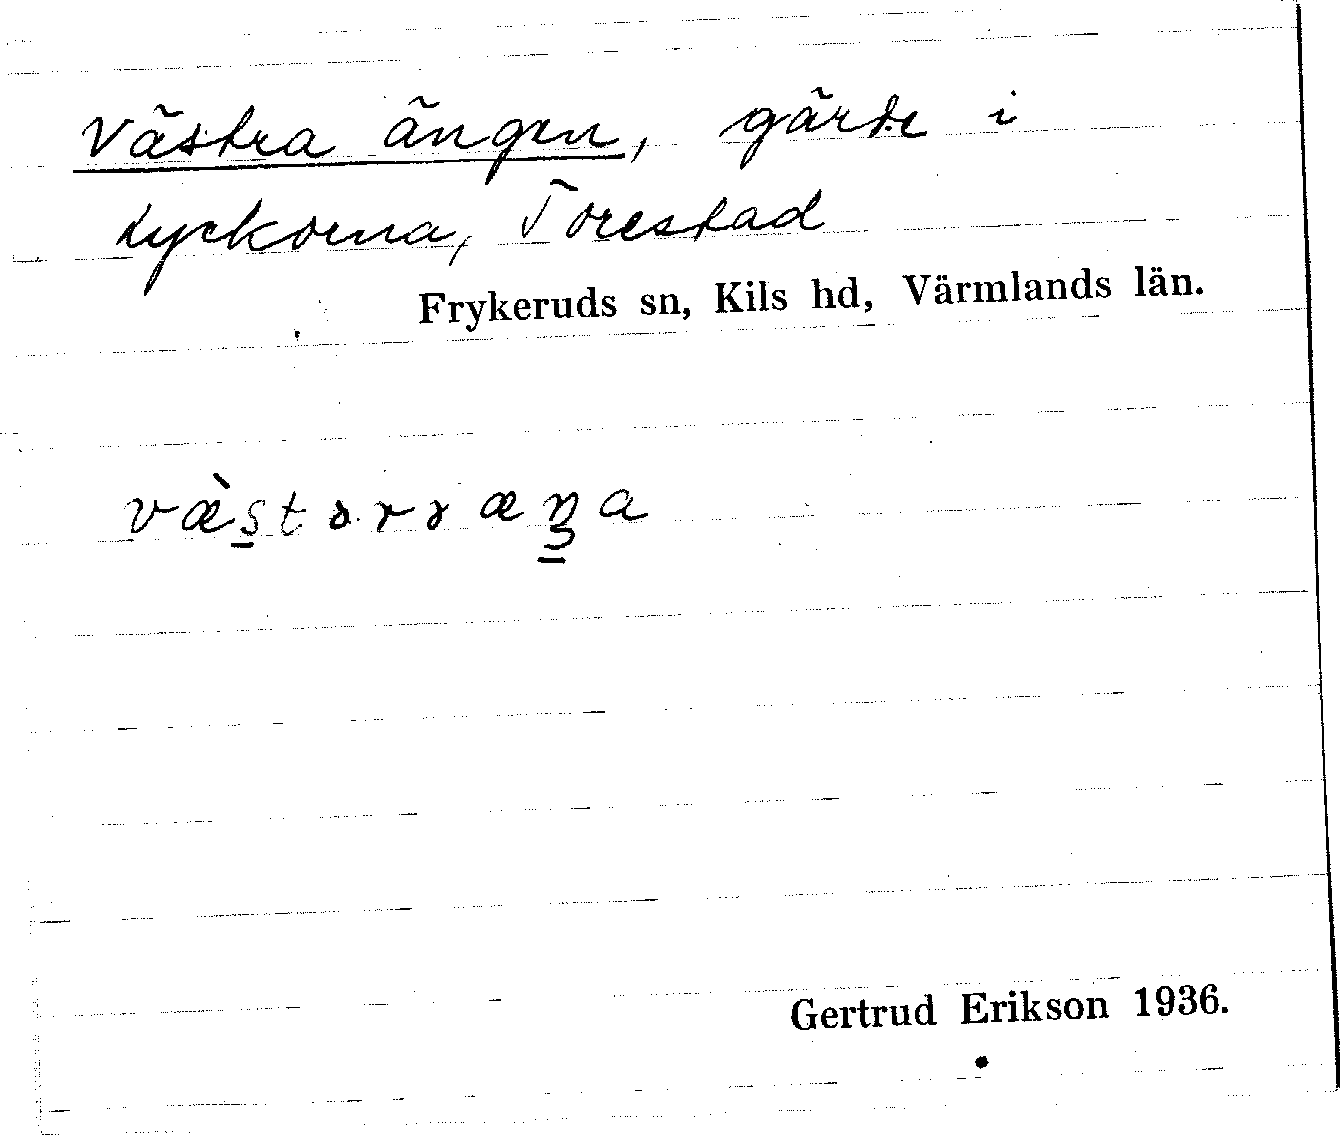 Västra ängen, gärde i
tyckorna, Torestad
Frykeruds sn, Kils hd, Värmlands län.
væ̀s̱tərɤæŋa
Gertrud Erikson 1936.